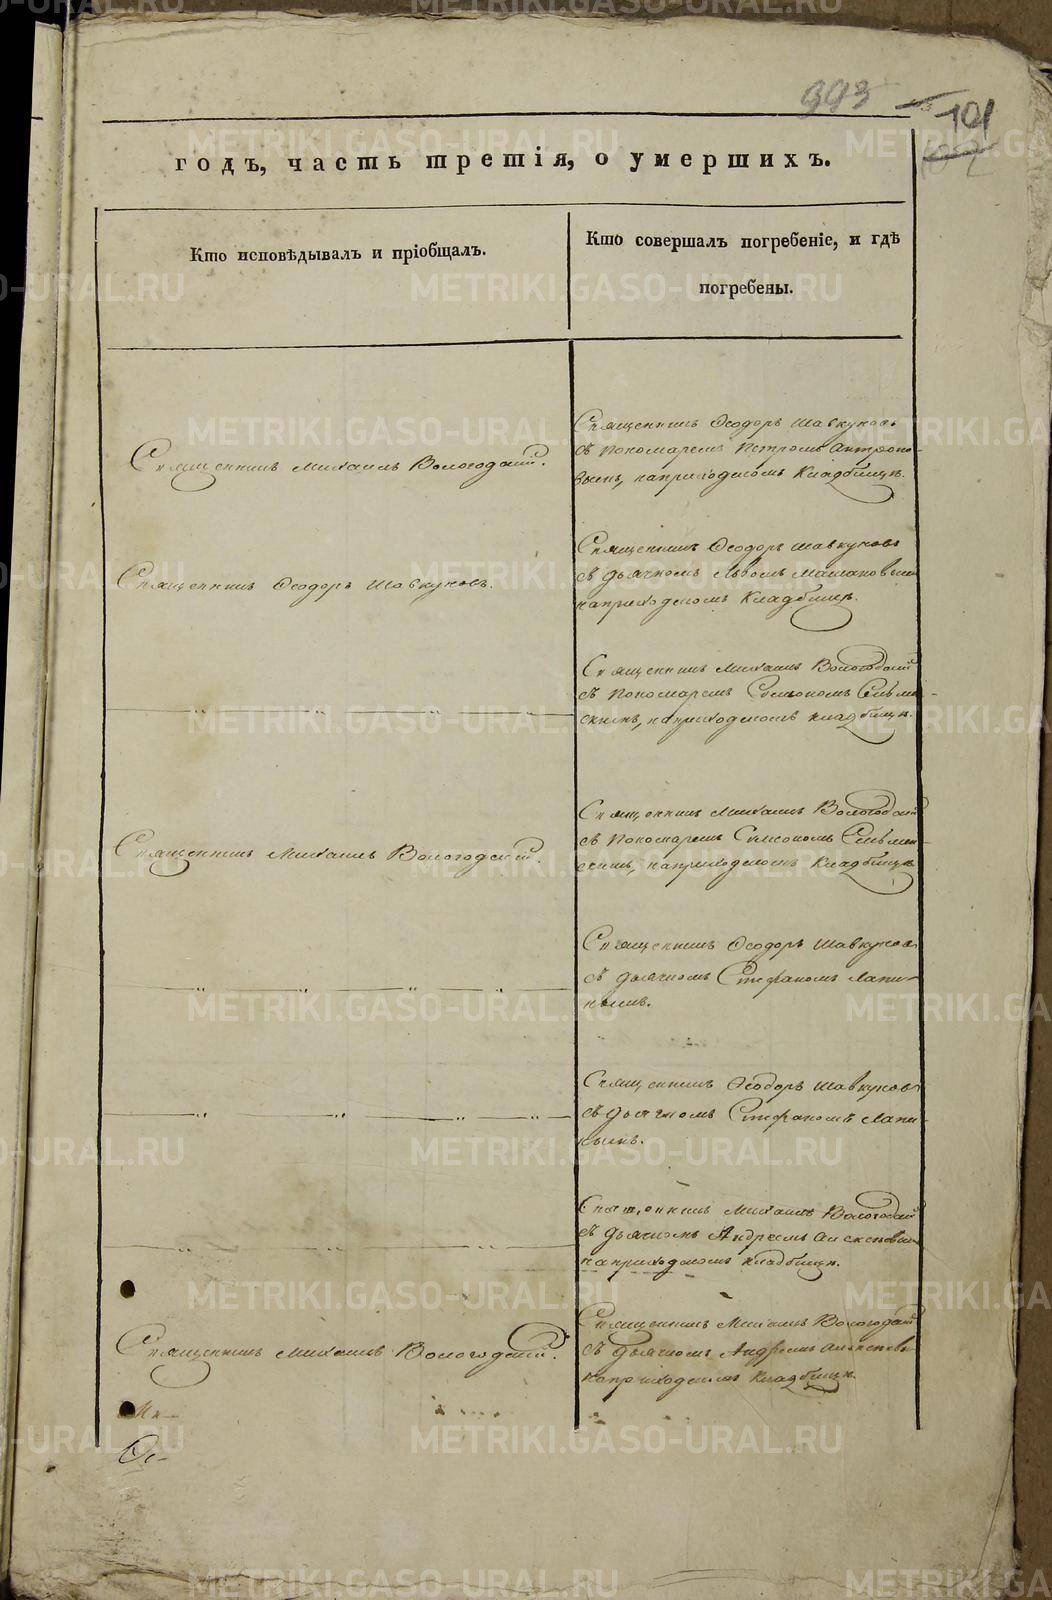 993
101
102
годъ, часть третія, о умершихъ.
Кто исповѣдывалъ и пріобщалъ.
Кто совершалъ погребеніе, и гдѣ
погребены.
Священникъ Михаилъ Вологодскій.
Священникъ Ѳеодоръ Шавкуновъ
съ пономаремъ Петромъ Антропо-
вымъ, на приходскомъ кладбищѣ.
Священникъ Ѳеодоръ Шавкуновъ.
Священникъ Ѳеодоръ Шавкуновъ
съ дьячкомъ Львомъ
на приходскомъ кладбищѣ.
Священникъ Михаилъ Вологодскій
съ пономаремъ Симеономъ
на приходскомъ кладбищѣ.
Священникъ Михаилъ Вологодскій.
Священникъ Михаилъ Вологодскій
съ пономаремъ Симеономъ
на приходскомъ кладбищѣ
Священникъ Ѳеодоръ Шавкуновъ
съ дьячкомъ Стефаномъ Лапи-
нымъ.
Священникъ Ѳеодоръ Шавкуновъ
съ дьячкомъ Стефаномъ Лапи-
нымъ.
Священникъ Михаилъ Вологодскій
съ дьячкомъ Андреемъ
на приходскомъ кладбищѣ.
Священникъ Михаилъ Вологодскій.
Священникъ Михаилъ Вологодскій
съ дьячкомъ Андреемъ
на приходскомъ кладбищѣ.
METRIKI.GASO-URAL.RU